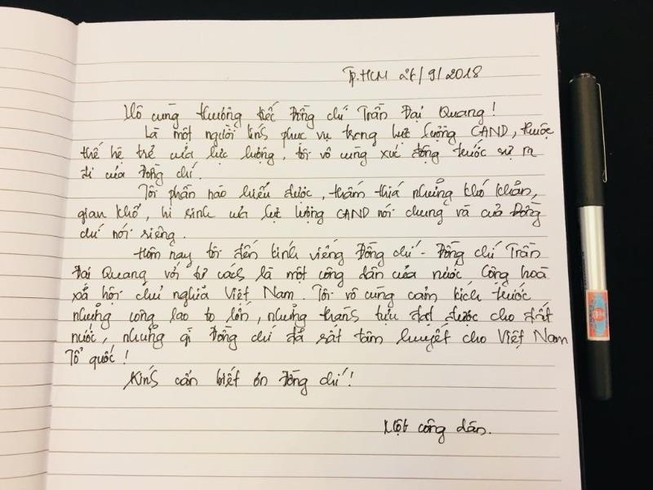 Tp.HCM 26/9/2018
Vô cùng thương tiếc Đồng chí Trần Đại Quang!
Là một người lính phục vụ trong lực lượng CAND, thuộc
thế hệ trẻ của lực lượng, tôi vô cùng xúc động trước sự ra
đi của Đồng chí.
Tôi phần nào hiểu được, thấm thía những khó khăn,
gian khổ, hi sinh của lực lượng CAND nói chung và của Đồng
chí nói riêng.
Hôm nay tôi đến kính viếng Đồng chí - Đồng chí Trần
Đại Quang với tư cách là một công dân của nước Cộng hoà
xã hội chủ nghĩa Việt Nam. Tôi vô cùng cảm kích trước
những công lao to lớn, những thành tựu đạt được cho đất
nước, những gì Đồng chí đã rất tâm huyết cho Việt Nam
Tổ quốc!
Kính cẩn biết ơn Đồng chí!
Một công dân.